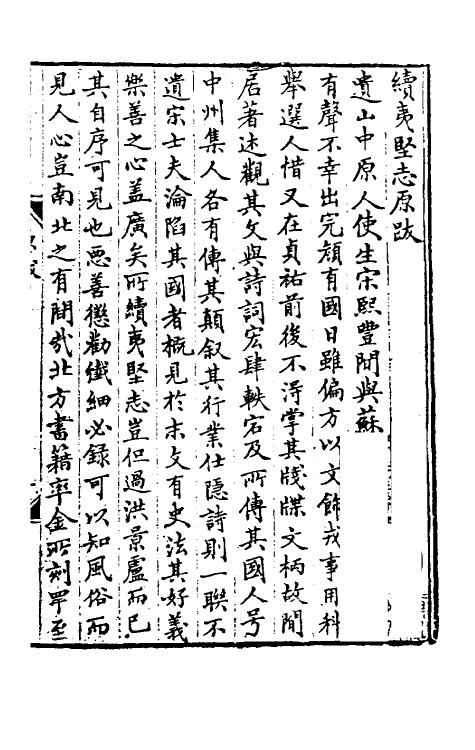 續夷堅志原跋
遺山中原人使生宋熙豐間與蘇
有聲不幸出完顔有國日雖偏方以文飾戎事用科
舉選人惜又在貞祐前後不淂掌其牋牒文柄故閒
居著述觀其文與詩詞宏肆軼宕及所傳其國人号
中州集人各有傳其顛叙其行業仕隱詩則一聯不
遺宋士夫淪陷其國者概見於末文有史法其好義
樂善之心盖廣矣所續夷堅志豈但過洪景盧而已
其自序可見也惡善懲勸纖細必錄可以知風俗而
見人心豈南北之有間哉北方書籍率金所刻罕至